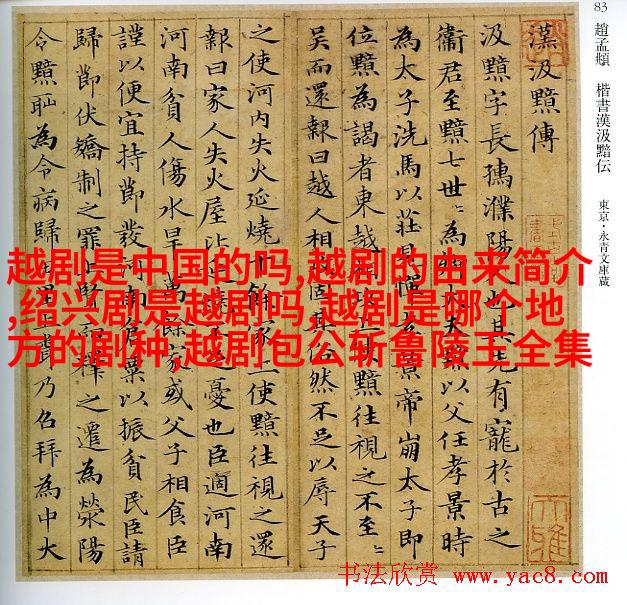 83 趙孟頫 楷書漢汲黯伝 東京・永青文庫蔵
漢汲黯傳
汲黯字長孺濮陽人也其先有寵於古之
衛君至黯七世〻為卿大夫黯以父任孝景時
為太子洗馬以莊見憚孝景帝崩太子即
位黯為謁者東越相攻上使黯往視之不至〻
吳而還報曰越人相攻固其俗然不足以辱天子
之使河内失火延燒千餘家上使黯往視之還
報曰家人失火屋比憂也臣過河南
河南貧人傷水旱萬餘家或父子相食臣
謹以便宜持節發河南倉粟以振貧民臣請
歸節伏矯制之罪上賢而釋之遷為滎陽
令黯恥為令病歸田里上聞乃召拜為中大
越剧是中国的吗,越剧的由来简介
,绍兴剧是越剧吗,越剧是哪个地
方的剧种,越剧包公斩鲁陵王全集
书法欣赏 www.yac8.com